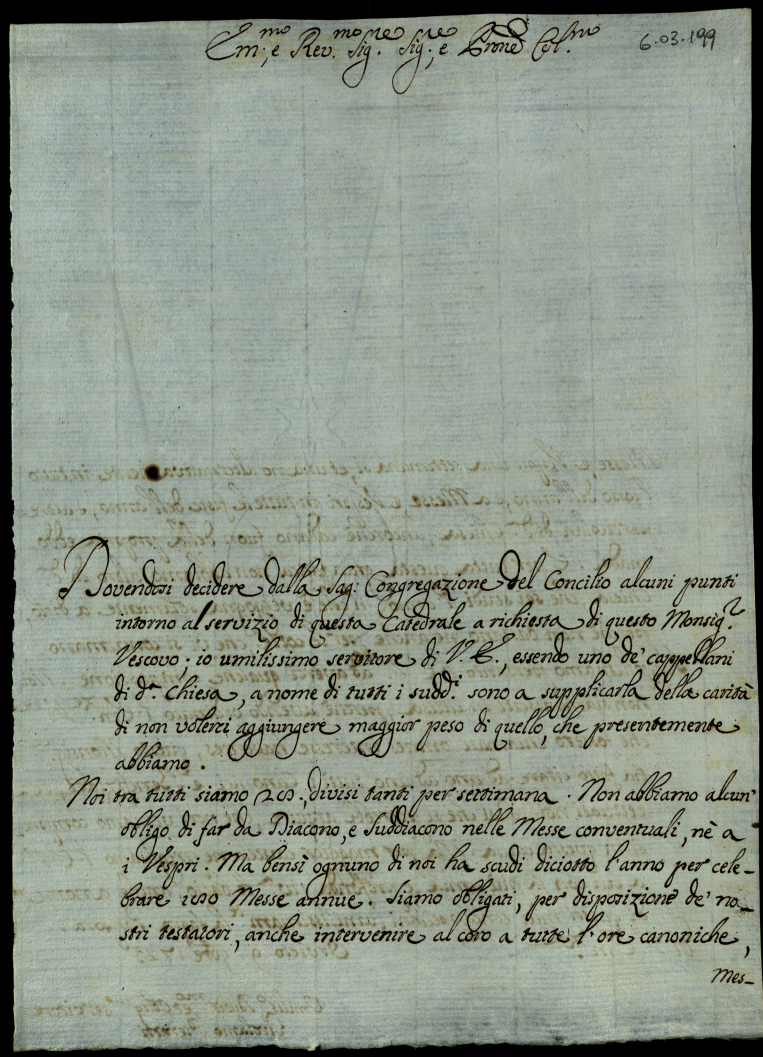 Em.mo, e Rev.mo Sig.re Sig.re, e Prone Col.mo
6.03.199
Dovendosi decidere dalla Sag: Congregazione del Concilio alcuni punti
intorno al servizio di questa Catedrale a richiesta di questo Monsig.r
Vescovo; io umilissimo servitore di V. E., essendo uno de' cappellani
di d.a Chiesa, a nome di tutti i sudd.i sono a supplicarla della carità
di non volerci aggiungere maggior peso di quello, che presentemente
abbiamo.
Noi tra tutti siamo divisi tanti per settimana. Non abbiamo alcun'
obligo di far da Diacono, e Suddiacono nelle Messe conventuali, nè a
i Vespri. Ma bensì ognuno di noi ha scudi diciotto l'anno per cele-
brare Messe annue. Siamo obligati, per disposizione de' no-
stri testatori, anche intervenire al coro a tutte l'ore canoniche,
Mes-